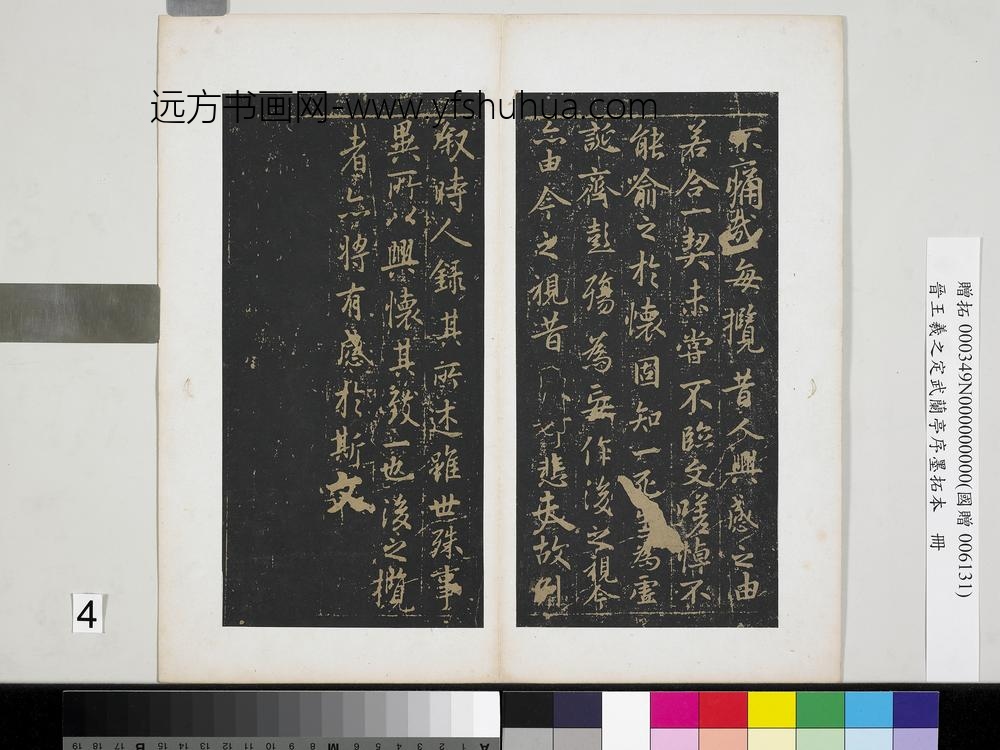 远方书画网-www.yfshuhua.com
不痛哉每攬昔人興感之由
若合一契未嘗不臨文嗟悼不
能喻之於懷固知一死生為虛
誕齊彭殤為妄作後之視今
亦由今之視昔悲夫故列
叙時人錄其所述雖世殊事
異所以興懷其致一也後之攬
者亦將有感於斯文
贈拓 000349N000000000(國贈 006131)
晉王羲之定武蘭亭序墨拓本 冊
4
19 18 17 16 15 B 14 13 12 11 10 9 8 M 7 6 5 4 3 2 1 A